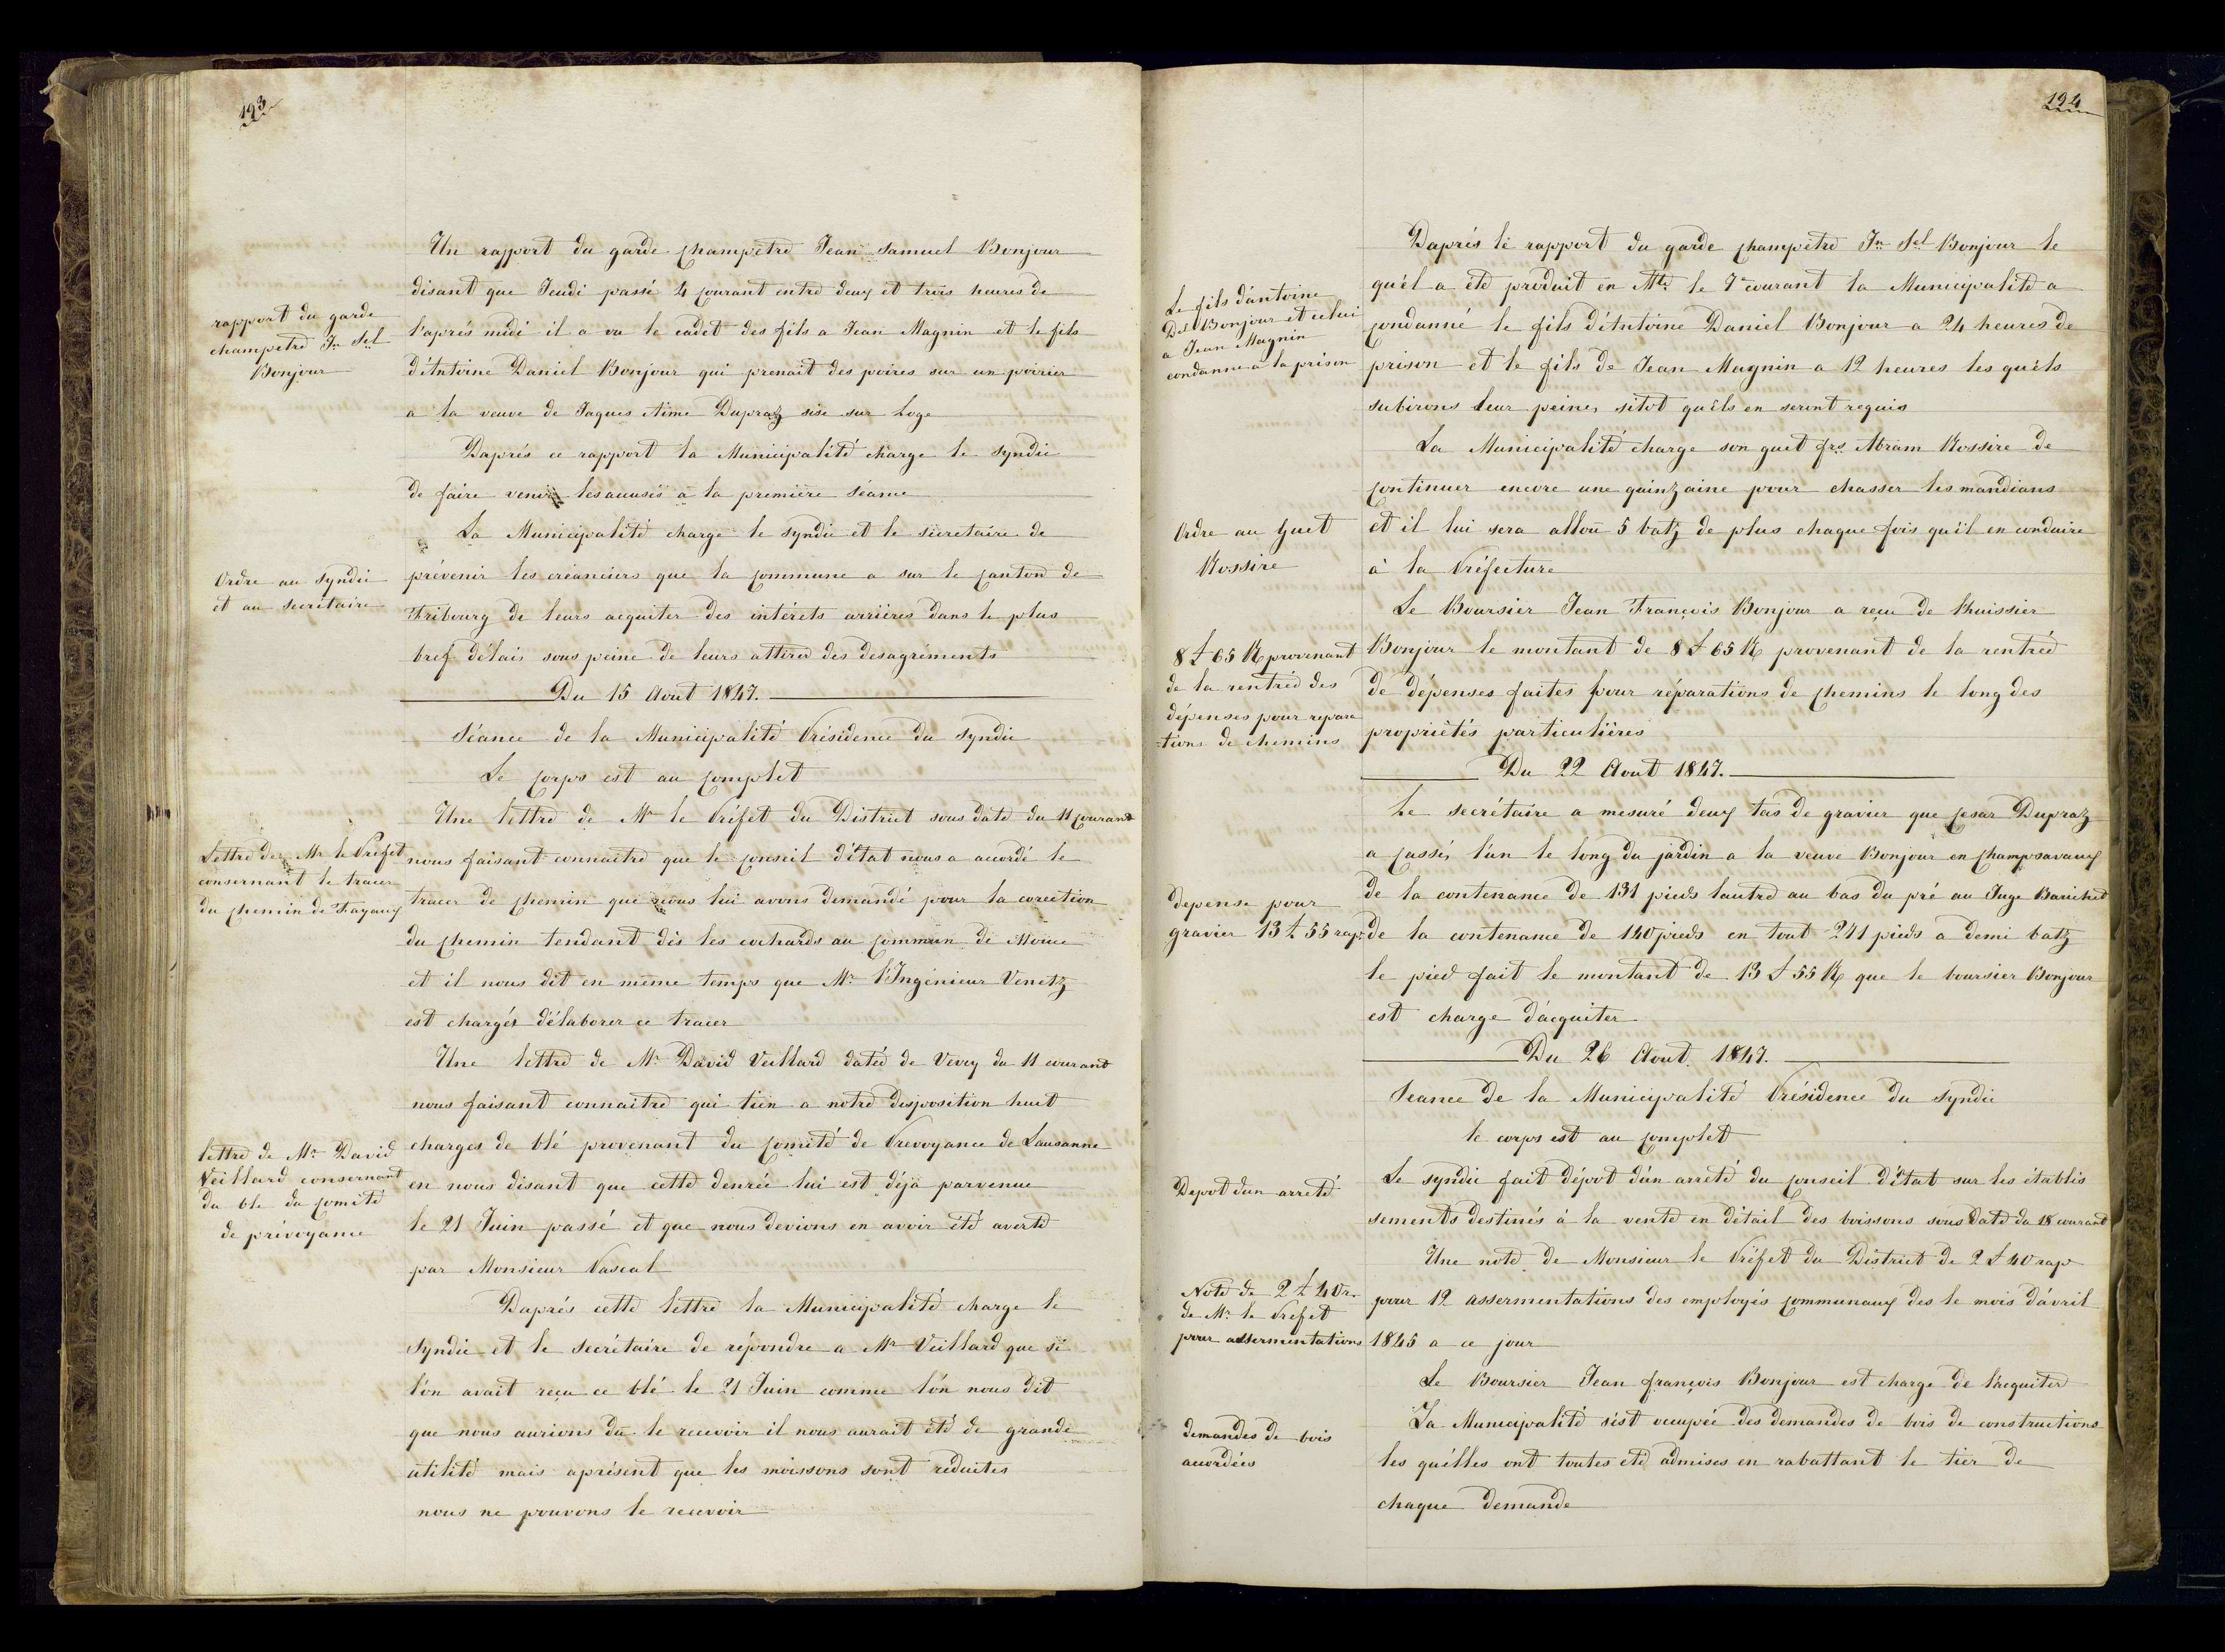 193
Un rapport du garde champêtre Jean Samuel Bonjour
disant que Jeudi passé 4 courant entre deux et trois heures de
rapport du garde
champetre Jn Sel
Bonjour
l'après midi il a vu le cadet des fils a Jean Magnin et le fils
d'Antoine Daniel Bonjour qui prenait des poires sur un poirier
a la veuve de Jaques Aimé Dupraz sise sur Loge
Daprés ce rapport la Municipalité charge le syndic
de faire venir les accusés à la première séance
La Municipalité charge le syndic et le sécretaire de
Ordre au syndic
et au secrétaire
prévenir les créanciers que la commune a sur le canton de
Fribourg de leurs acquiter des intérets arriérés dans le plus
bref délais sous peine de leurs attirer des desagréments
Du 15 Aout 1847.
Séance de la Municipalité Présidence du syndic
Le corps est au complet
Une lettre de Mr le Préfet du District sous date du 11 courant
Lettre de Mr le Prefet
consernant le tracer
du chemin de Fayaux
nous faisant connaitre que le conseil d'état nous a accordé le
tracer de chemin que nous lui avons demandé pour la corection
du chemin tendant dès les cochards au commun de Moille
et il nous dit en même temps que Mr l'Ingénieur Venetz
est chargér d'élaborer ce tracer
Une lettre de Mr David Veillard datée de Vevey du 11 courant
nous faisant connaitre qui tien a notre disposition huit
lettre de Mr David
Veillard consernant
du blé du comité
de prévoyance
charges de blé provenant du Comité de Prevoyance de Lausanne
en nous disant que cette denrée lui est déjà parvenue
le 21 Juin passé et que nous devions en avoir été averti
par Monsieur Pascal
Daprés cette lettre la Municipalité charge le
syndic et le secrétaire de répondre a Mr Veillard que si
l'on avait reçu ce blé le 21 Juin comme l'on nous dit
que nous aurions dû le recevoir il nous aurait été de grande
utilité mais aprésent que les moissons sont réduites
nous ne pouvons le recevoir
194
Daprés le rapport du garde champêtre Jn Sel Bonjour le
Le fils d'antoine
Del Bonjour et celui
a Jean Magnin
condanné a la prison
quel a été produit en Mté le 7e courant la Municipalité a
condanné le fils d'Antoine Daniel Bonjour a 24 heures de
prison et le fils de Jean Magnin a 12 heures les quels
subirons leur peine, sitot qu'ils en seront requis
La Municipalité charge son guet frs Abram Rossire de
continuer encore une quinzaine pour chasser les mandians
Ordre au guet
Rossire
et il lui sera alloué 5 batz de plus chaque fois qu'il en conduire
à la Préfecture
Le Boursier Jean François Bonjour a reçu de l'huissier
8 £ 65 R provenant
de la rentrée des
dépenses pour repara
=tions de chemins
Bonjour le montant de 8 £ 65 R provenant de la rentrée
de dépenses faites pour réparations de chemins le long des
propriétés particulières
Du 22 Aout 1847.
Le secrétaire a mesuré deux tas de gravier que Cesar Dupraz
a cassés l'un le long du jardin a la veuve Bonjour en Champsavaux
depense pour
gravier 13 £ 55 rap.
de la contenance de 131 pieds lautre au bas du pré au Juge Barichet
de la contenance de 140 pieds en tout 271 pieds a demi batz
le pied fait le montant de 13 £ 55 R que le boursier Bonjour
est charge d'acquiter
Du 26 Aout 1847.
Seance de la Municipalité Présidence du syndic
le corps est au complet
Depot d'un arreté
Le syndic fait dépot d'un arrêté du conseil d'état sur les établis
sements destinés à la vente en détail des boissons sous date du 18 courant
Une note de Monsieur le Préfet du District de 2 £ 40 rap
Note de 2 £ 40 r.
de Mr le Prefet
pour assermentations
pour 12 assermentations des employés communaux des le mois d'avril
1845 a ce jour
Le Boursier Jean françois Bonjour est charge de l'acquiter
demandes de bois
accordées
La Municipalité s'est occupée des demandes de bois de constructions
les quélles ont toutes été admises en rabattant le tier de
chaque demande